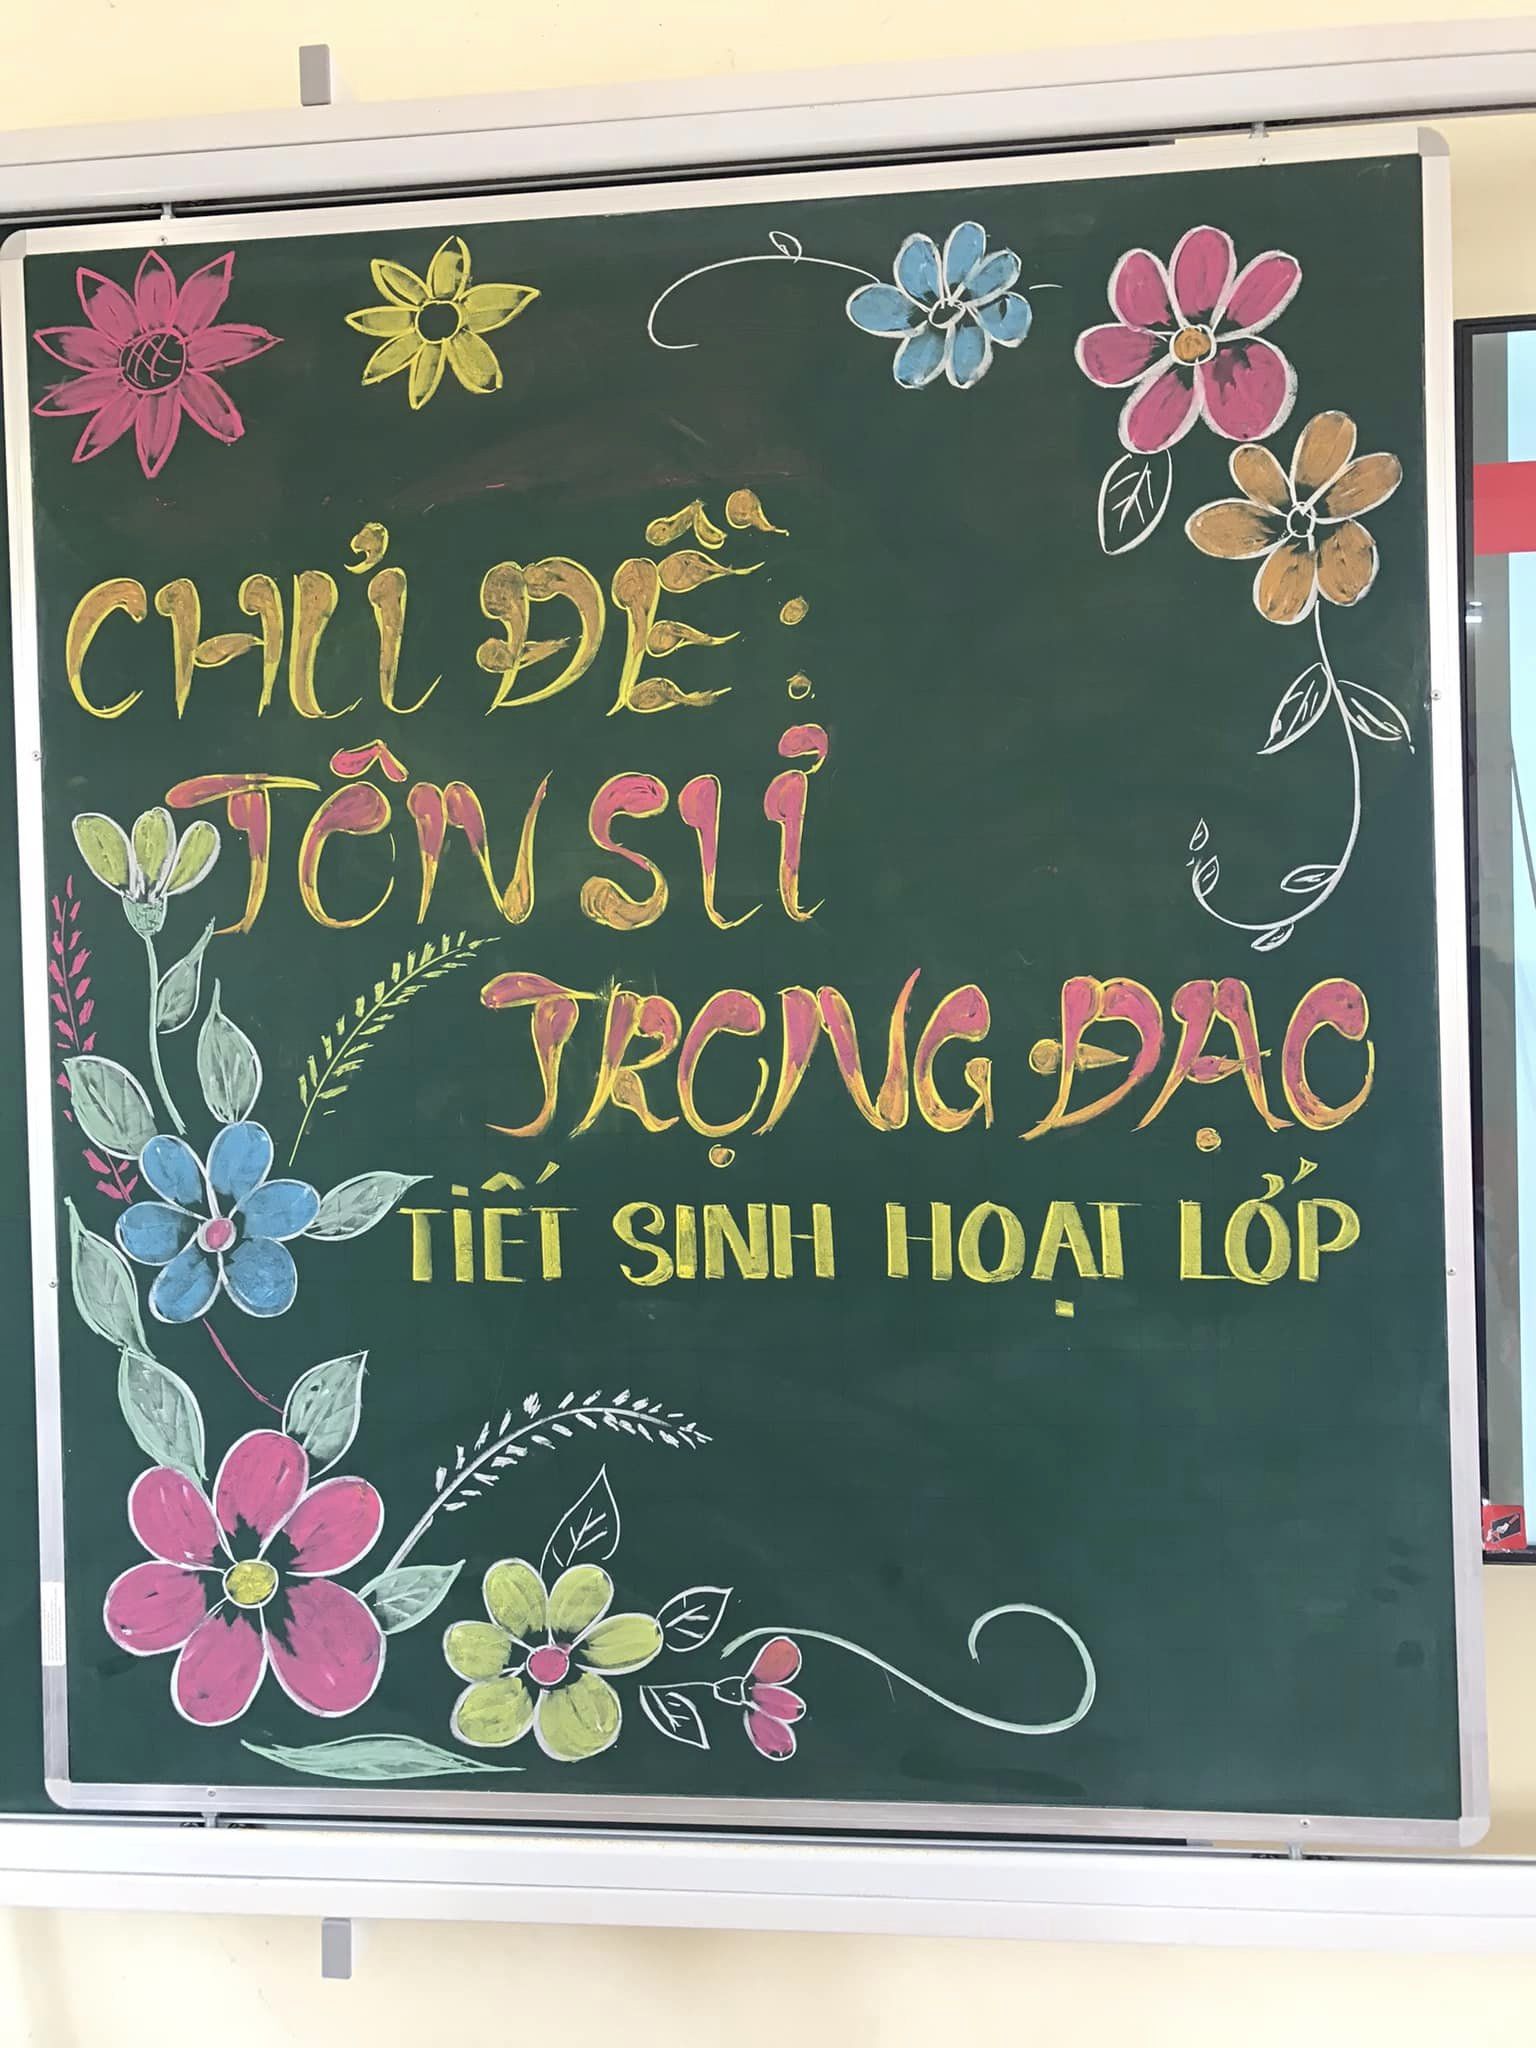 CHỦ ĐỀ:
TÔN SƯ
TRỌNG ĐẠO
TIẾT SINH HOẠT LỚP